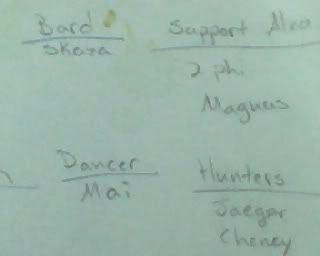 Bard
Skaza
Support
2 ph.
Magnus
Dancer
Mai
Hunters
Jaeger
Cheney